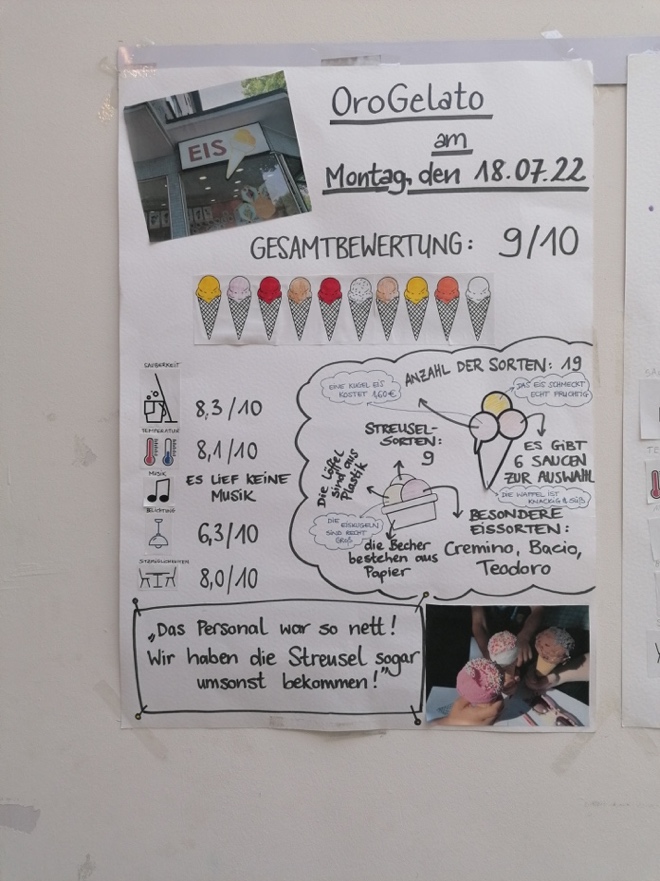 OroGelato
am
Montag, den 18.07.22
EIS
GESAMTBEWERTUNG: 9/10
SAUBERKEIT
8,3/10
TEMPERATUR
8,1/10
MUSIK
ES LIEF KEINE
MUSIK
BELICHTUNG
6,3/10
8,0/10
ANZAHL DER SORTEN: 19
EINE KUGEL EIS
KOSTET 1,60€
DAS EIS SCHMECKT
ECHT FRUCHTIG
STREUSEL-
SORTEN:
9
ES GIBT
6 SAUCEN
ZUR AUSWAHL
Die Löffel
sind aus
Plastik
DIE WAFFEL IST
KNACKIG & SÜß
DIE EISKUGELN
SIND RECHT
GROß
die Becher
bestehen aus
Papier
BESONDERE
EISSORTEN:
Cremino, Bacio,
Teodoro
„Das Personal war so nett!
Wir haben die Streusel sogar
umsonst bekommen!"